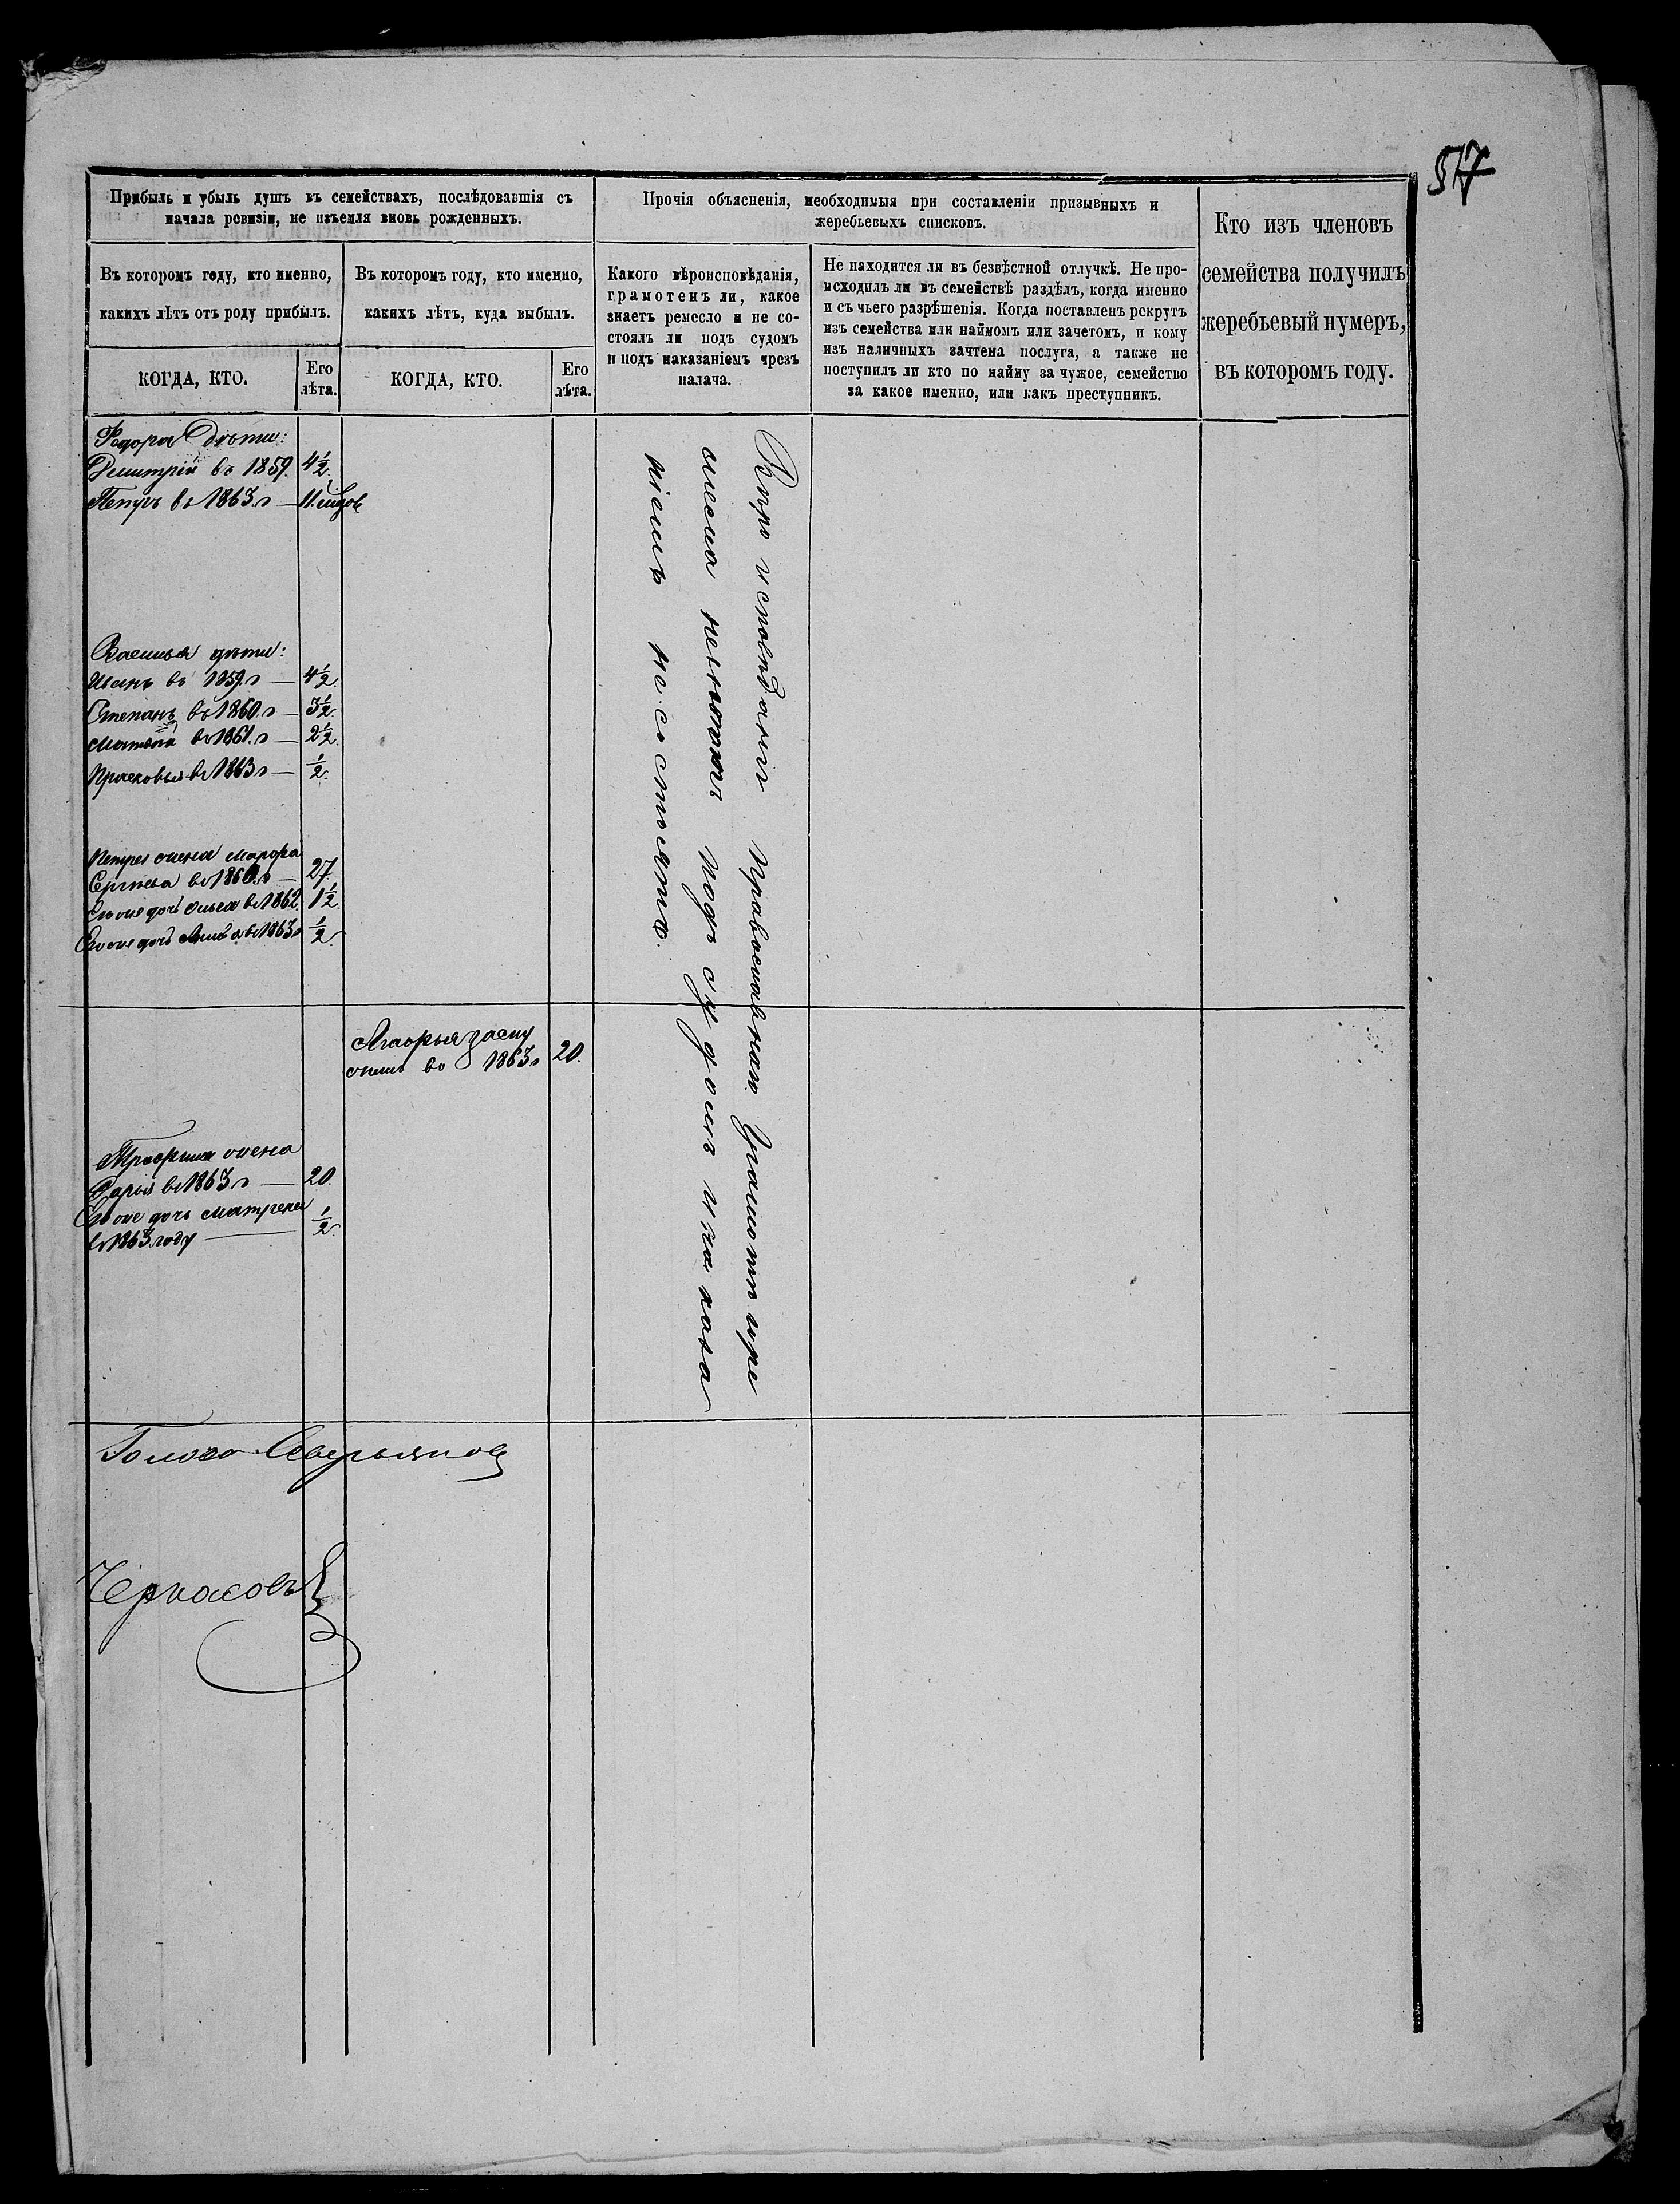 517
Прибыль и убыль душъ въ семействахъ, послѣдовавшія съ
начала ревизіи, не изъемля вновь рожденныхъ.
Прочія объясненія, необходимыя при составленіи призывныхъ и
жеребьевыхъ списковъ.
Кто изъ членовъ
семейства получилъ
жеребьевый нумеръ,
въ которомъ году.
Въ которомъ году, кто именно,
какихъ лѣтъ отъ роду прибылъ.
Въ которомъ году, кто именно,
какихъ лѣтъ, куда выбылъ.
Какого вѣроисповѣданія,
грамотенъ ли, какое
знаетъ ремесло и не со-
стоялъ ли подъ судомъ
и подъ наказаніемъ чрезъ
палача.
Не находится ли въ безвѣстной отлучкѣ. Не про-
исходилъ ли въ семействѣ раздѣлъ, когда именно
и съ чьего разрѣшенія. Когда поставленъ рекрутъ
изъ семейства или наймомъ или зачетомъ, и кому
изъ наличныхъ зачтена послуга, а также не
поступилъ ли кто по найму за чужое, семейство
за какое именно, или какъ преступникъ.
КОГДА, КТО.
Его
лѣта.
КОГДА, КТО.
Его
лѣта.
Федора дѣти:
Дмитрій въ 1859. 4½
Петръ въ 1863 г — 11.
Василья дѣти:
Иванъ въ 1859 г — 4½.
Степанъ въ 1860. г — 3½.
въ 1861. г — 2½.
Прасковья въ 1863 г — ½.
Петра жена
Сергѣева въ 1860. г — 27.
Его же дочь въ 1862. 1½.
Его же дочь Анна въ 1863 г ½.
заму
жемъ въ 1863 г 20.
Трофима жена
Дарья въ 1863 г — 20.
Его же дочь Матрена
въ 1863 году — ½.
Вѣро исповѣданія православнаго Грамотѣ и ре
месла незнаютъ подъ судомъ и наказа
ніемъ не состоятъ.
Голова Аверьяновъ
Черкасовъ